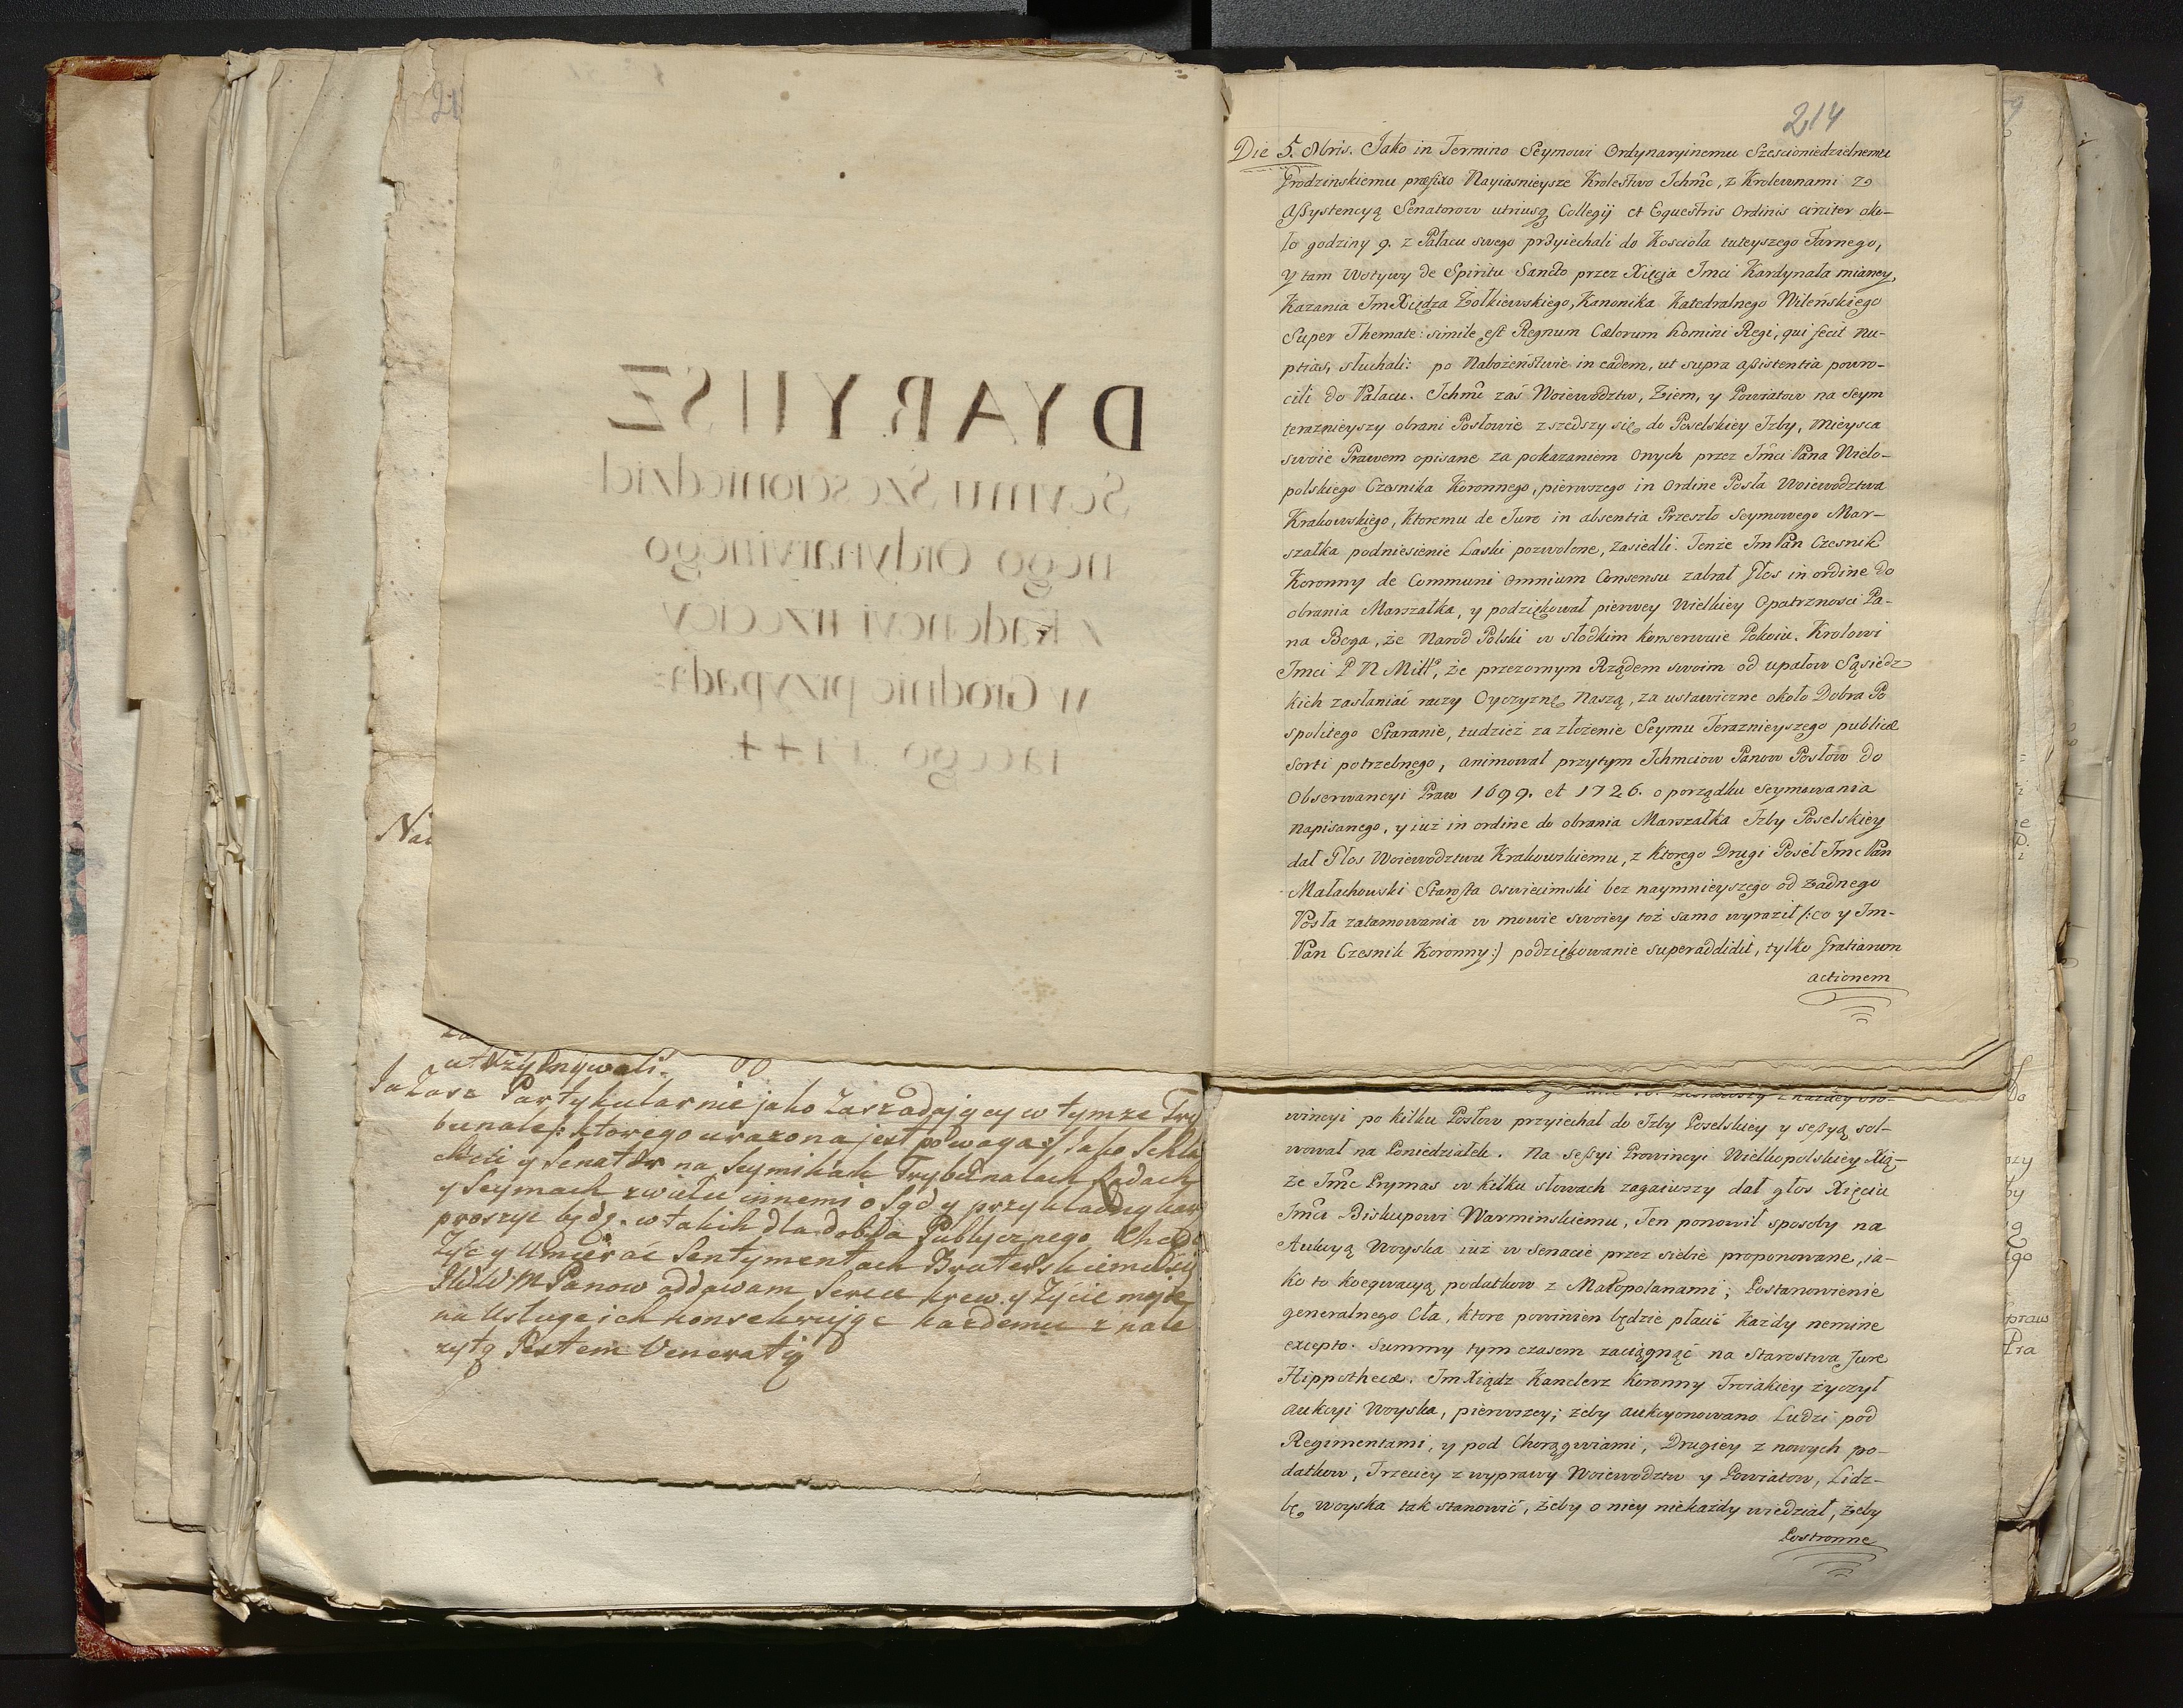 DYARYUSZ
Seymu Szescioniedziel
nego Ordynaryinego
z kadencyi trzeciey
w Grodnie przypada:
iącego 1744.
utrzymywali.
Ja zas Partykularnie jako Zasiadający w tymze Try
bunale /: ktorego urazona jest powaga :/ jako Szla
chcic y Senator na Seymikach Trybunalach Radach
y Seymach z wielu innemi o Sąd y przykladną karę
proszyc będę. w takich dla dobra Publycznego Chcąc
Zyć y Umierać Sentymentach Braterskiemu
JWW: M Panow oddawam Serce krew. y Zycie moje
na Usługe ich konsekrując kazdemu z nale
zytą Jestem Veneratią
214
Die 5. 8bris. Jako in Termino Seymowi Ordynaryinemu Szescioniedzielnemu
Grodzinskiemu præfixo Nayiasnieysze Krolestwo Ichmc, z Krolewnami z
Assystencyą Senatorow utriusq Collegij et Equestris Ordinis circiter oko-
ło godziny 9. z Pałacu swego przyiechali do Kosciola tuteyszego Farnego,
Y tam Wotywy de Spiritu Sancto przez Xięcia Jmci Kardynała mianey,
Kazania JmXiędza Żołkiewskiego, Kanonika Katedralnego Wileńskiego
Super Themate: simile est Regnum Cælorum homini Regi, qui fecit nu-
ptias, słuchali: po Nabożeństwie in eadem, ut supra assistentia powro-
cili do Pałacu. Ichmc zaś Woiewodztw, Ziem, y Powiatow na Seym
teraznieyszy obrani Posłowie zszedszy się do Poselskiey Izby, mieysca
swoie Prawem opisane za pokazaniem onych przez Jmci Pana Wielo-
polskiego Czesnika Koronnego, pierwszego in Ordine Posła Woiewodztwa
Krakowskiego, ktoremu de Jure in absentia Przeszło Seymowego Mar-
szałka podniesienie Laski pozwolone, zasiedli. Tenże JmPan Czesnik
Koronny de Communi omnium Consensu zabrał głos in ordine do
obrania Marszałka, y podziękował pierwey Wielkiey Opatrznosci Pa-
na Boga, że Narod Polski w słodkim konserwuie Pokoiu. Krolowi
Jmci P N Miłł, że przezornym Rządem swoim od upałow Sąsiedz
kich zasłaniać raczy Oyczyznę Naszą, za ustawiczne około Dobra Po
spolitego Staranie, tudzież za złożenie Seymu Teraznieyszego publicæ
Sorti potrzebnego, animował przytym Ichmciow Panow Posłow do
Obserwancyi Praw 1699. et 1726. o porządku Seymowania
napisanego, y iuż in ordine do obrania Marszałka Izby Poselskiey
dał Głos Woiewodztwu Krakowskiemu, z ktorego Drugi Poseł Jmc Pan
Małachowski Starosta Oswiecimski bez naymnieyszego od żadnego
Posła zatamowania w mowie swoiey toż samo wyraził /: co y Jm-
Pan Czesnik Koronny :/ podziękowanie superaddidit, tylko Gratiarum
actionem
wincyi po kilku Posłow przyiechał do Izby Poselskiey y sessyą sol-
wował na Poniedziałek. Na sessyi Prowincyi Wielkopolskiey Xią-
że Jmc Prymas w kilku słowach zagaiwszy dał głos Xięciu
Jmci Biskupowi Warminskiemu, Ten ponowił sposoby na
Aukcyą Woyska iuż w Senacie przez siebie proponowane, ia-
ko to koequacyą podatkow z Małopolanami; Postanowienie
generalnego Cła, ktore powinien będzie płacić każdy nemine
excepto. Summy tym czasem zaciągnąć na Starostwa Jure
Hippothecæ. JmXiądz Kanclerz Koronny Troiakiey życzył
aukcyi Woyska, pierwszey; żeby aukcyonowano Ludzi pod
Regimentami, y pod Chorągwiami, Drugiey z nowych po-
datkow, Trzeciey z wyprawy Woiewodztw y Powiatow, Licz-
bę woyska tak stanowić, żeby o niey niekażdy wiedział, żeby
Postronne